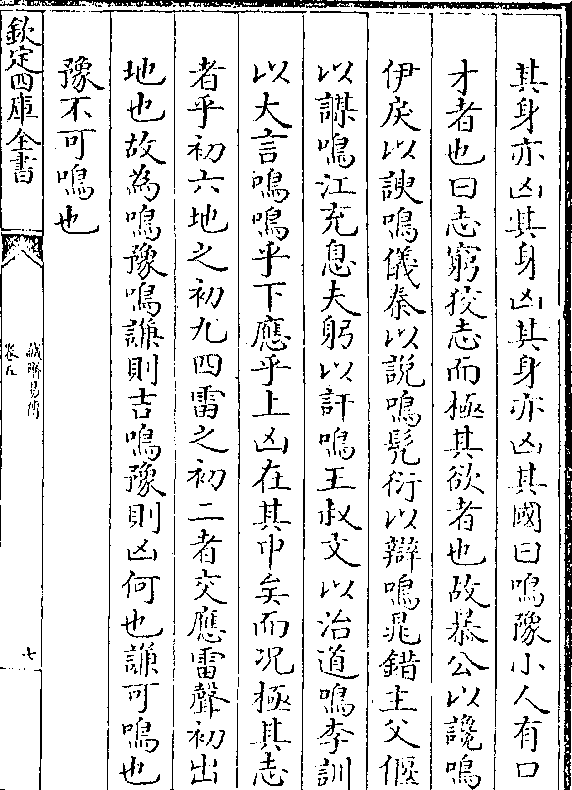 其身亦凶其身凶其身亦凶其國曰鳴豫小人有口
才者也曰志窮狡志而極其欲者也故暴公以讒鳴
伊戾以諛鳴儀秦以說鳴髠衍以辯鳴晁錯主父偃
以謀鳴江充息夫躬以訐鳴王叔文以治道鳴李訓
以大言鳴鳴乎下應乎上凶在其中矣而况極其志
者乎初六地之初九四雷之初二者交應雷聲初出
地也故為鳴豫鳴謙則吉鳴豫則凶何也謙可鳴也
豫不可鳴也
欽定四庫全書
誠齋易傳
卷五
七